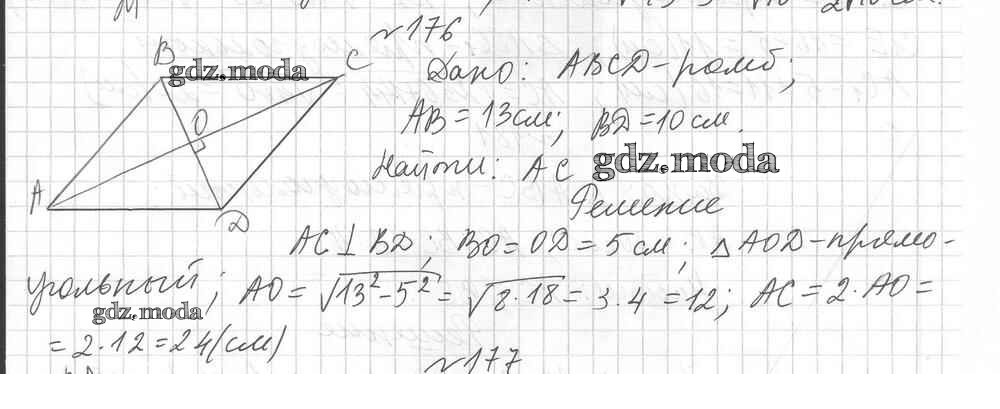 №176
B C
gdz.moda
Дано: ABCD-ромб;
O
AB = 13 см; BD = 10 см.
Найти: AC gdz.moda
A D
Решение
AC ⊥ BD; BO = OD = 5 см; △ AOD - прямо-
угольный; AO = √13² - 5² = √8·18 = 3·4 = 12; AC = 2·AO =
gdz.moda
= 2·12 = 24 (см)
№177